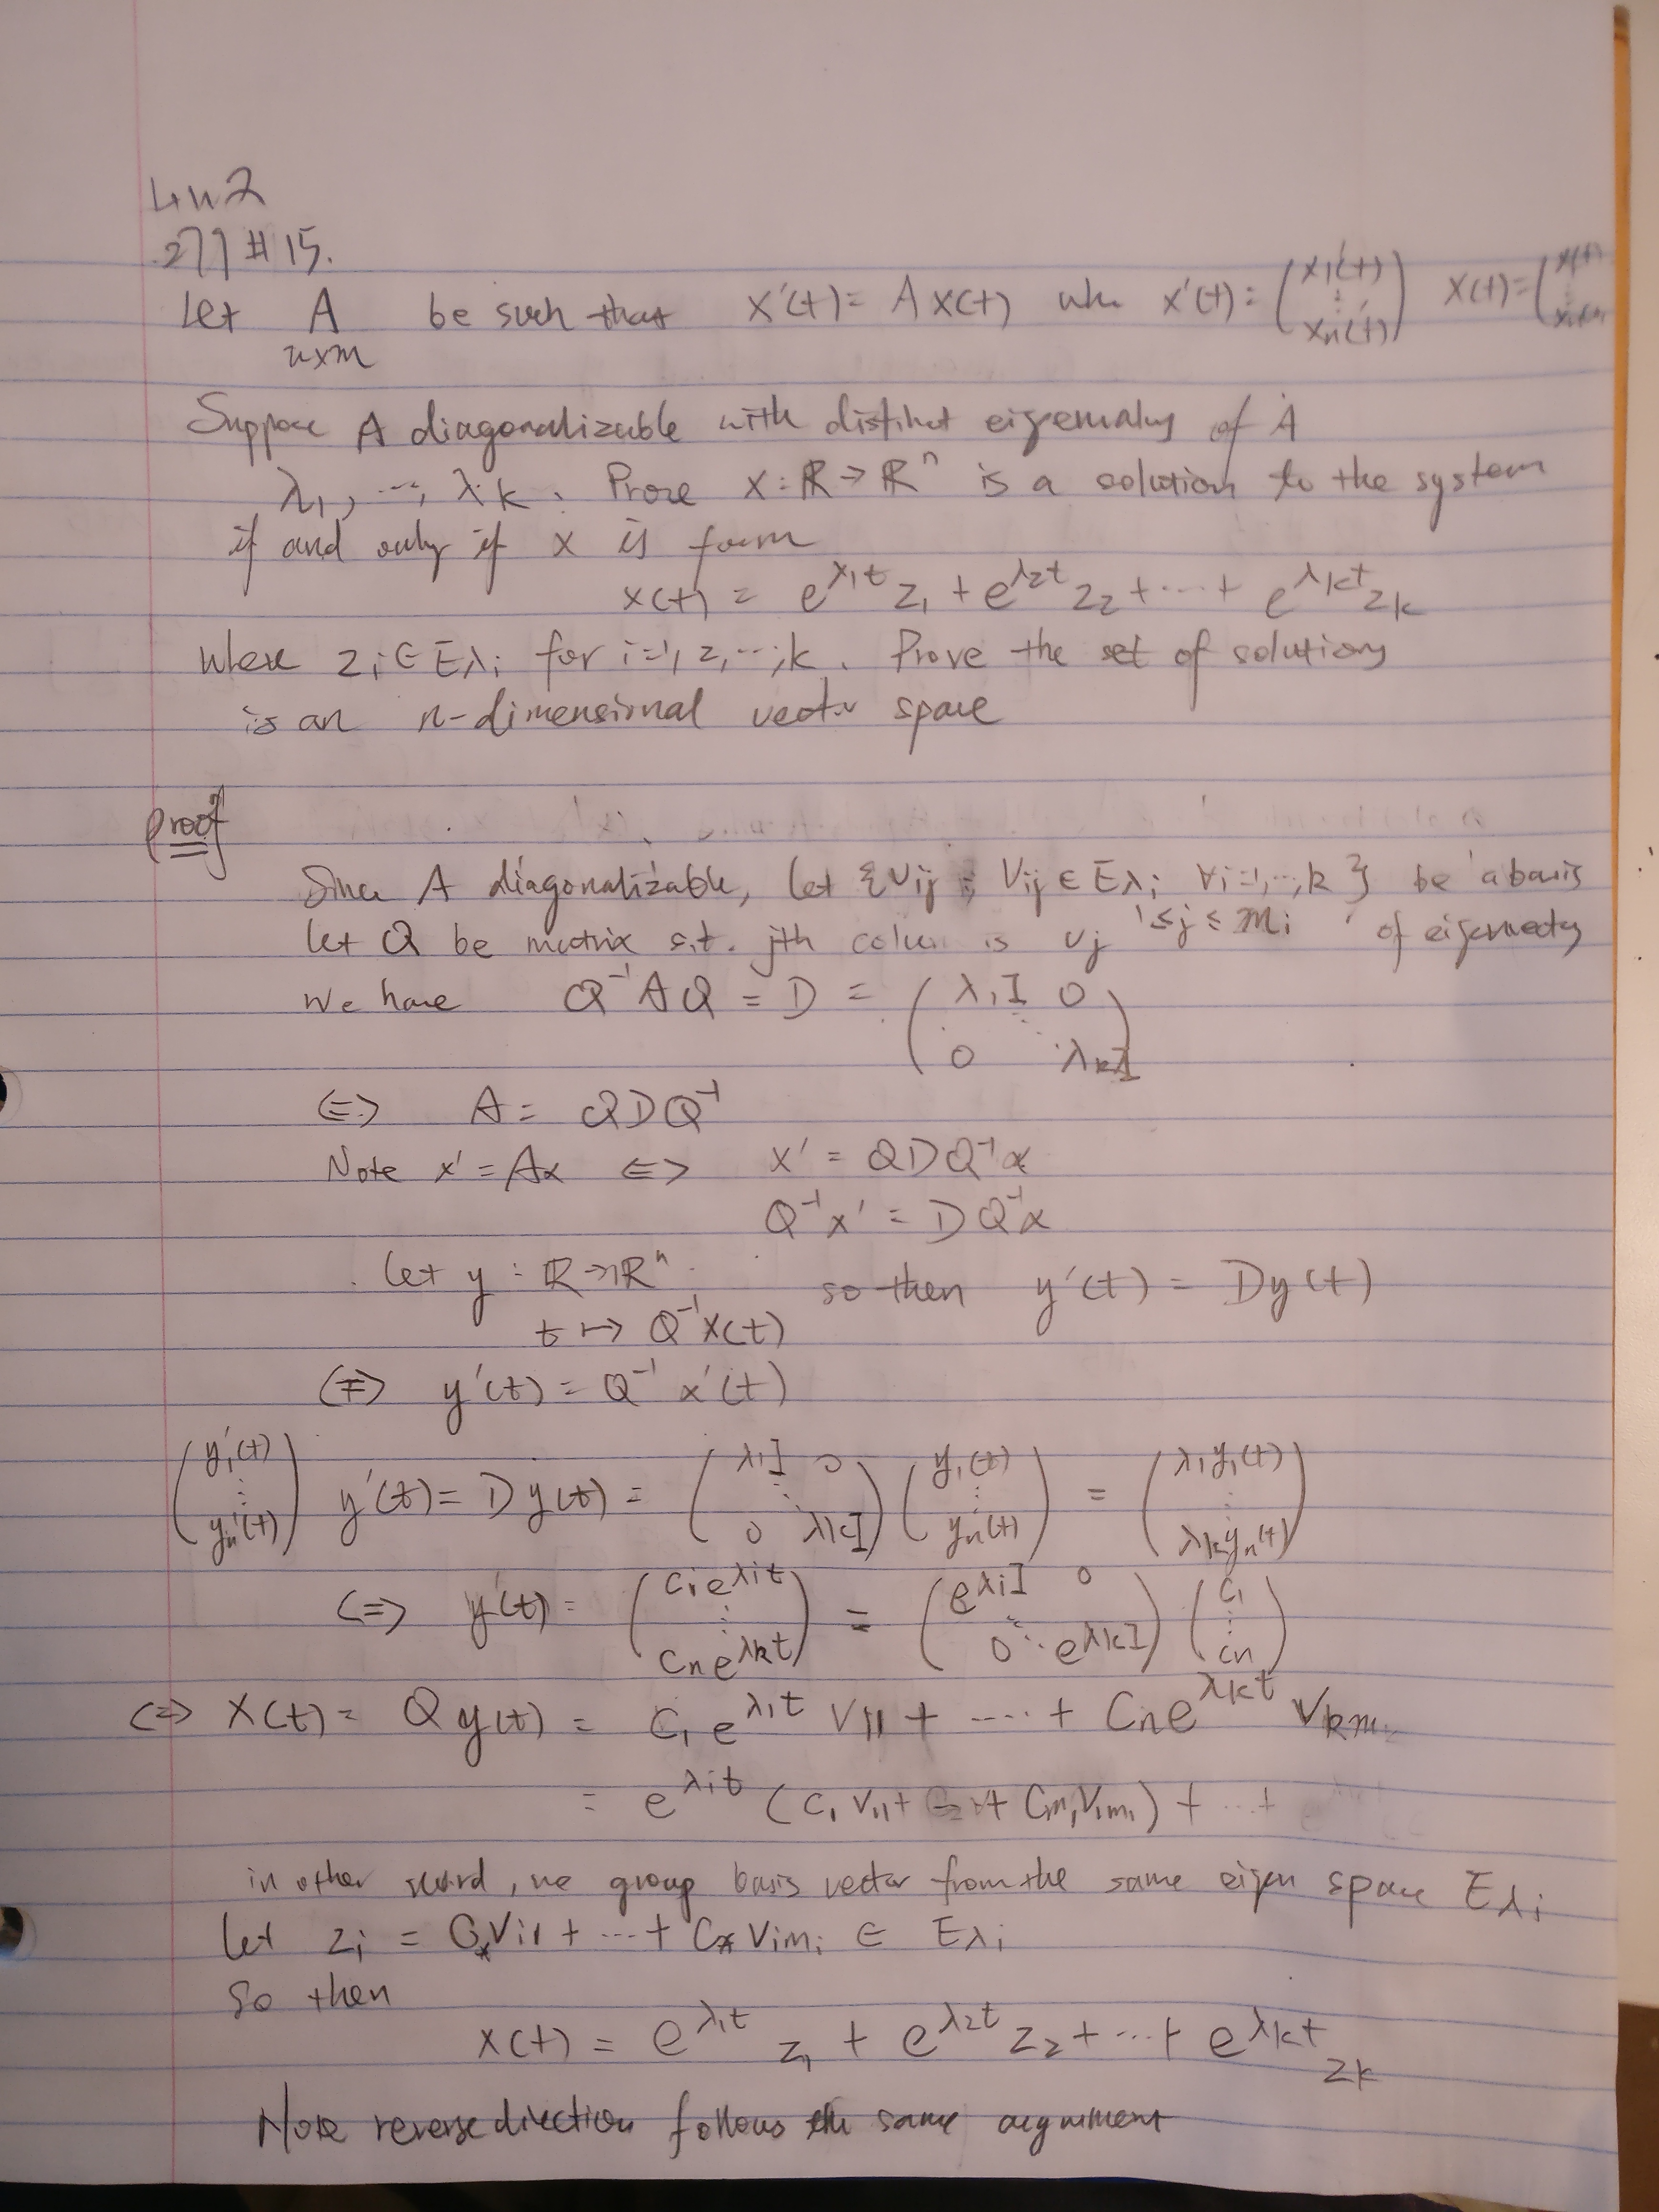 277 #15.
Let A be such that x'(t) = A x(t) whe x'(t) = (x₁'(t) ⋮ xₙ'(t)) x(t) = (
n×m
Suppose A diagonalizable with distinct eigenvalues of A
λ₁, ⋯, λk. Prove x: ℝ → ℝⁿ is a solution to the system
if and only if x is form
x(t) = e^{λ₁t} z₁ + e^{λ₂t} z₂ + ⋯ + e^{λkt} zk
where zᵢ ∈ Eλᵢ for i=1, 2, ⋯, k. Prove the set of solutions
is an n-dimensional vector space
proof
Since A diagonalizable, let {vij : vij ∈ Eλᵢ ∀i=1,⋯,k} be a basis
1 ≤ j ≤ mᵢ
let Q be matrix s.t. jth column is vj of eigenvectors
We have Q⁻¹AQ = D = (λ₁I 0 ⋱ 0 λkI)
⇔ A = QDQ⁻¹
Note x' = Ax ⇔ x' = QDQ⁻¹x
Q⁻¹x' = DQ⁻¹x
let y : ℝ → ℝⁿ so then y'(t) = Dy(t)
t ↦ Q⁻¹x(t)
y'(t) = Q⁻¹ x'(t)
(y₁'(t) ⋮ yₙ'(t)) y'(t) = D y(t) = (λ₁I 0 ⋱ 0 λkI) (y₁(t) ⋮ yₙ(t)) = (λ₁y₁(t) ⋮ λkyₙ(t))
⇔ y'(t) = (c₁e^{λ₁t} ⋮ cₙe^{λkt}) = (e^{λ₁I} 0 ⋱ 0 e^{λkI}) (c₁ ⋮ cₙ)
⇔ x(t) = Q y(t) = c₁e^{λ₁t} v₁₁ + ⋯ + cₙe^{λkt} vkm
= e^{λ₁t} (c₁v₁₁ + ⋯ + cm₁v₁m₁) + ⋯ +
in other word, we group basis vector from the same eigen space Eλᵢ
let zᵢ = c*vi1 + ⋯ + c*vimᵢ ∈ Eλᵢ
so then
x(t) = e^{λ₁t} z₁ + e^{λ₂t} z₂ + ⋯ + e^{λkt} zk
Note reverse direction follows the same argument